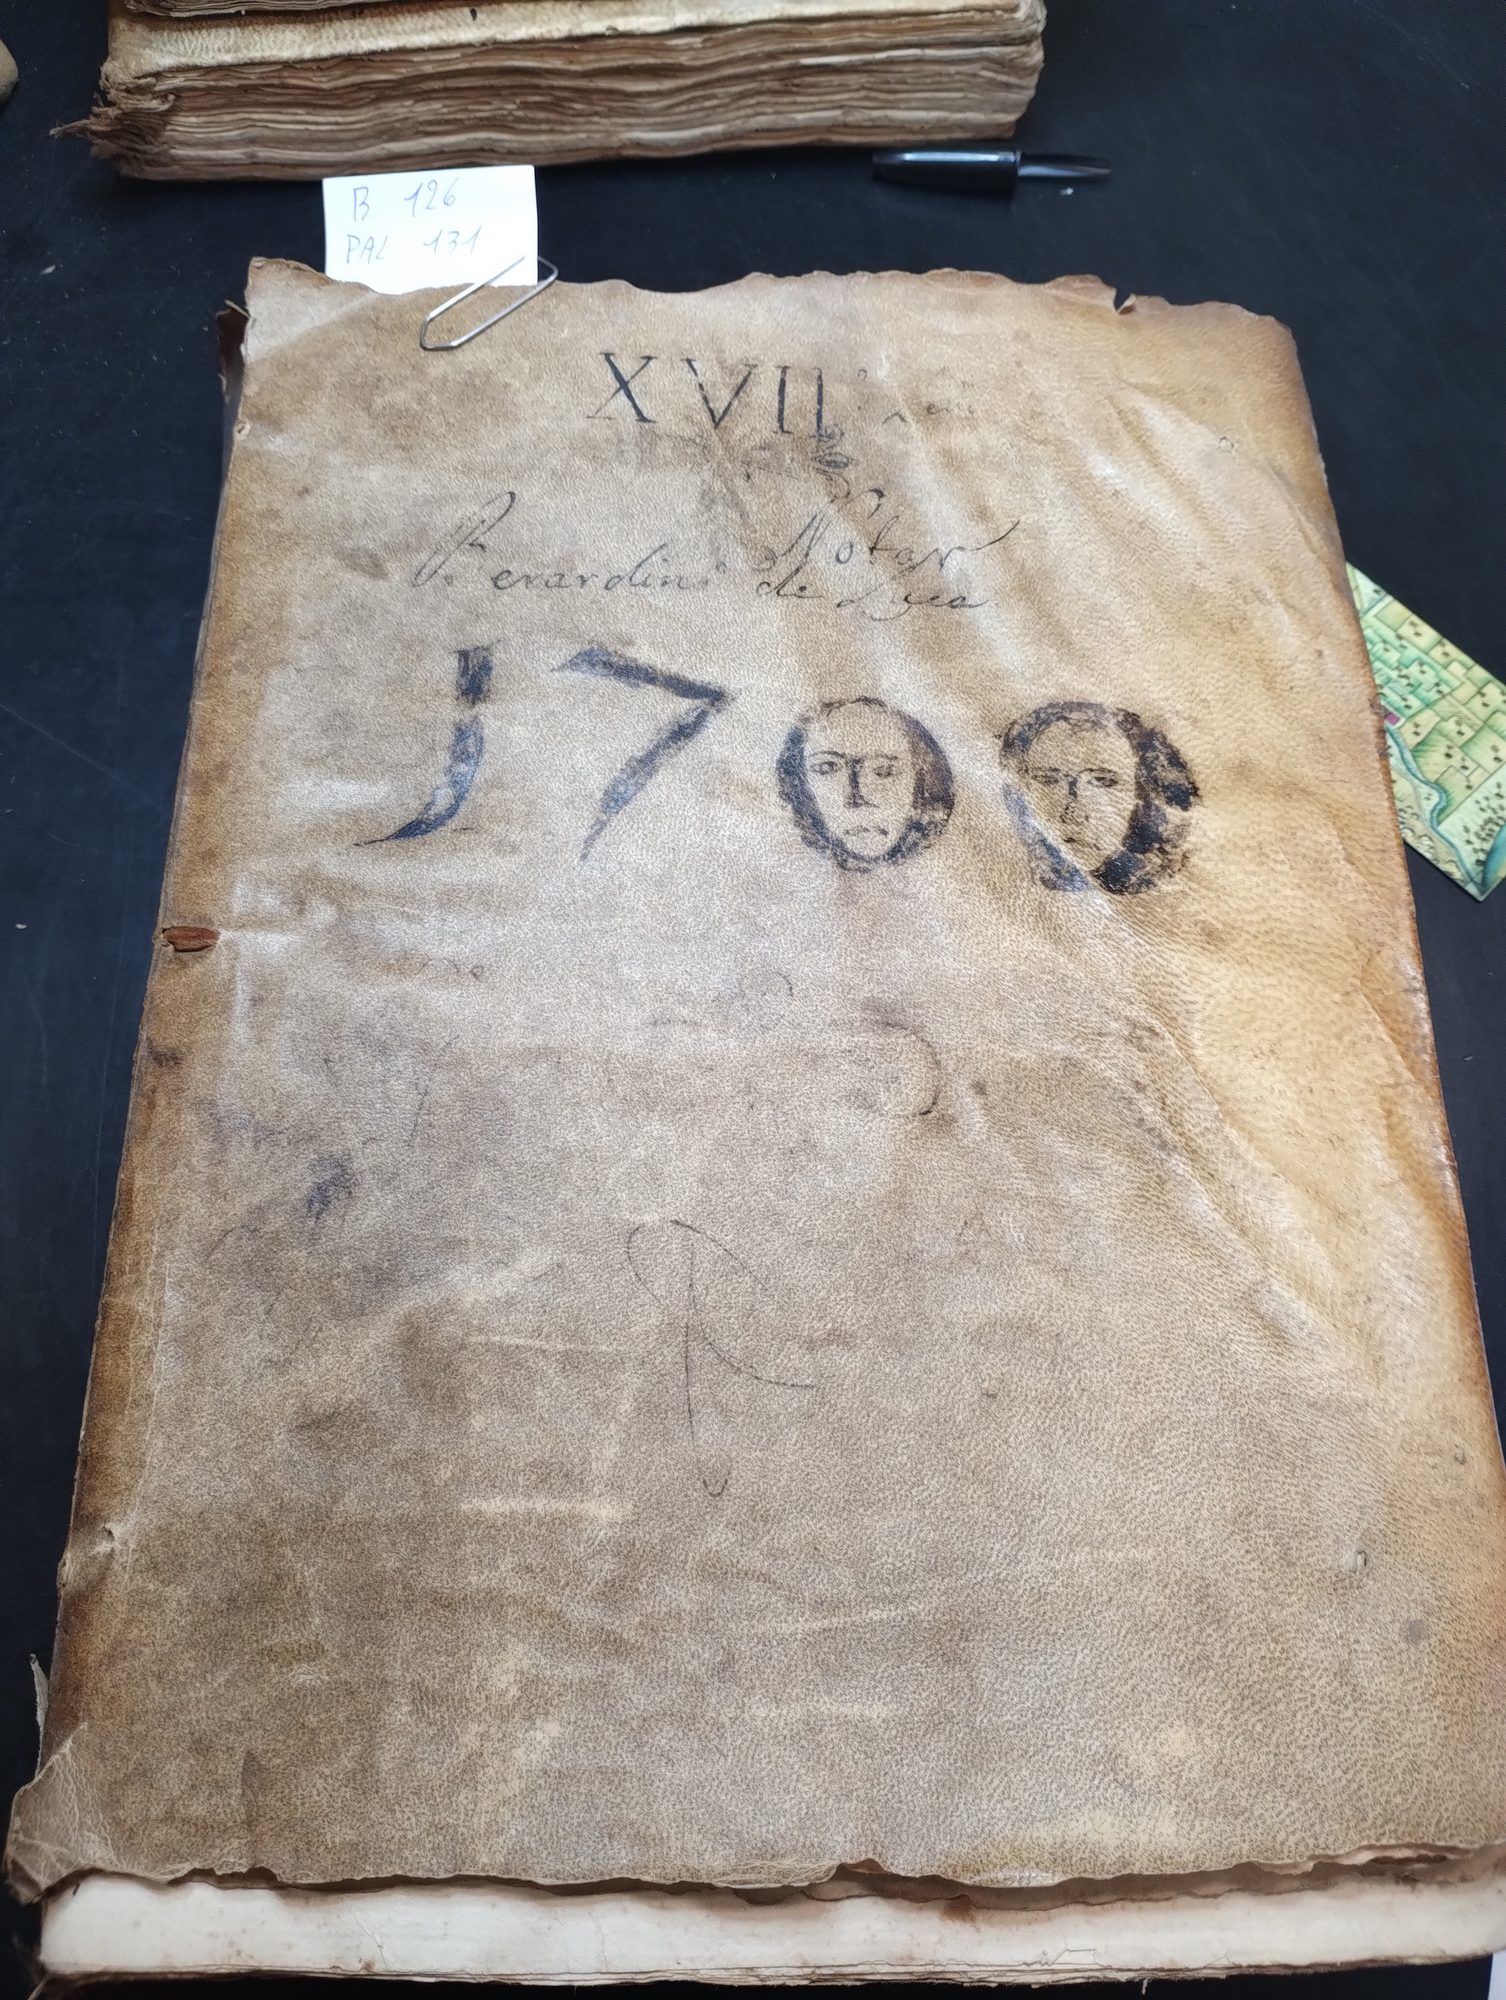 B 126
PAL. 131
XVII
Notar
Berardin de Lyca
1700